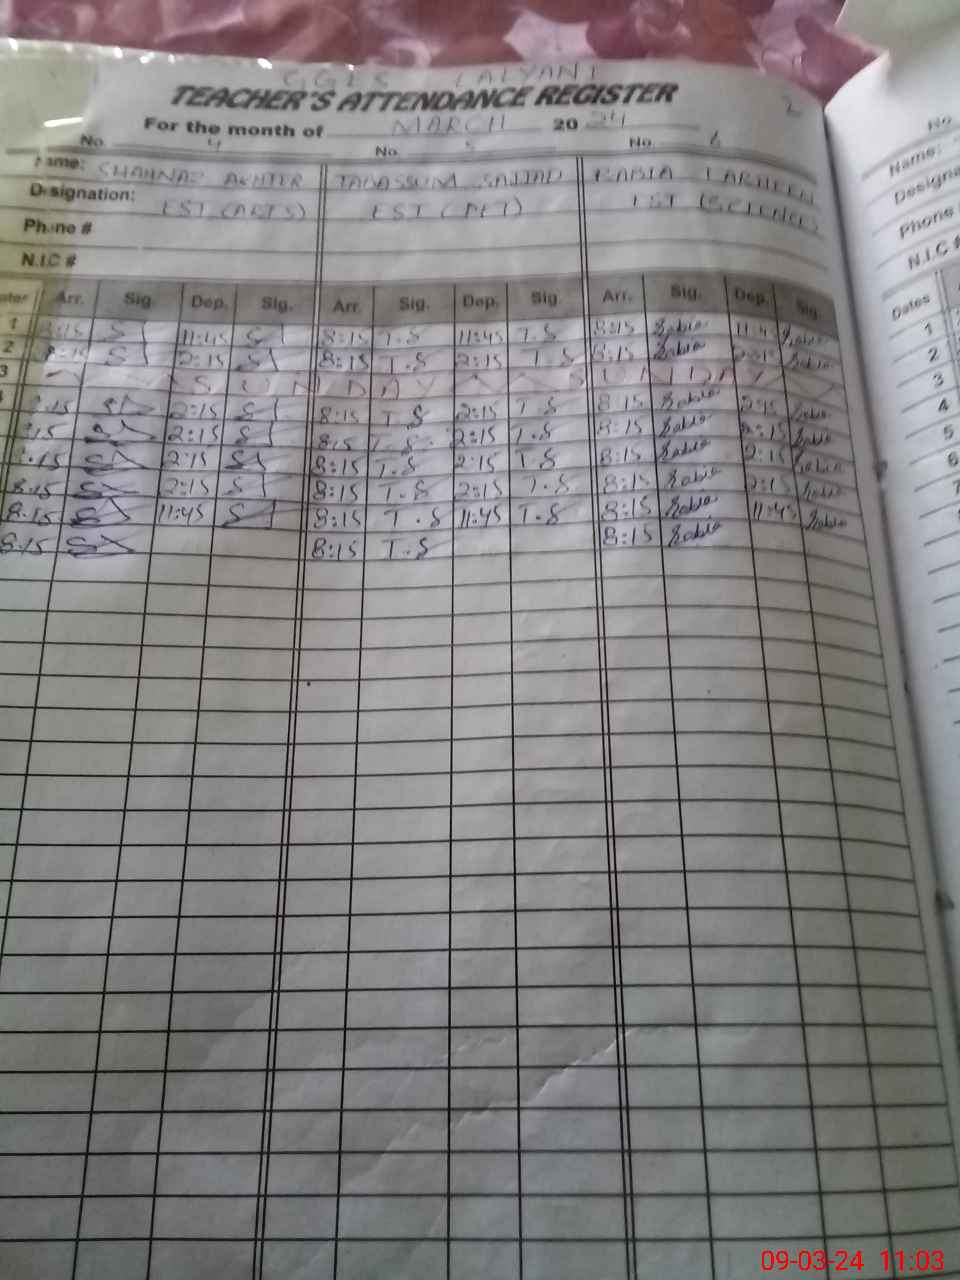 GGES LALYANI
TEACHER'S ATTENDANCE REGISTER 2
For the month of MARCH 2024
No. 4 No. 5 No. 6 No.
Name: SHAHNAZ AKHTER TABASSUM SAJJAD RABIA Name:
Designation: EST (ARTS) EST (PET) EST (SCIENCE) Designa
Phone # Phone
N.I.C # N.I.C #
Arr. Sig. Dep. Sig. Arr. Sig. Dep. Sig. Arr. Sig. Dep. Sig. Dates
1 8:15 SA 11:45 SA 8:15 T.S 11:45 T.S 8:15 Rabia 11:45 Rabia 1
2 8:15 SA 2:15 SA 8:15 T.S 2:15 T.S 8:15 Rabia 2:15 Rabia 2
3 SUNDAY SUNDAY 3
8:15 SA 2:15 SA 8:15 T.S 2:15 T.S 8:15 Rabia 2:15 Rabia 4
:15 SA 2:15 SA 8:15 T.S 2:15 T.S 8:15 Rabia 2:15 Rabia 5
8:15 SA 2:15 SA 8:15 T.S 2:15 T.S 8:15 Rabia 2:15 Rabia 6
8:15 SA 2:15 SA 8:15 T.S 2:15 T.S 8:15 Rabia 2:15 Rabia 7
8:15 SA 11:45 SA 8:15 T.S 11:45 T.S 8:15 Rabia 11:45 Rabia
8:15 SA 8:15 T.S 8:15 Rabia
09-03-24 11:03